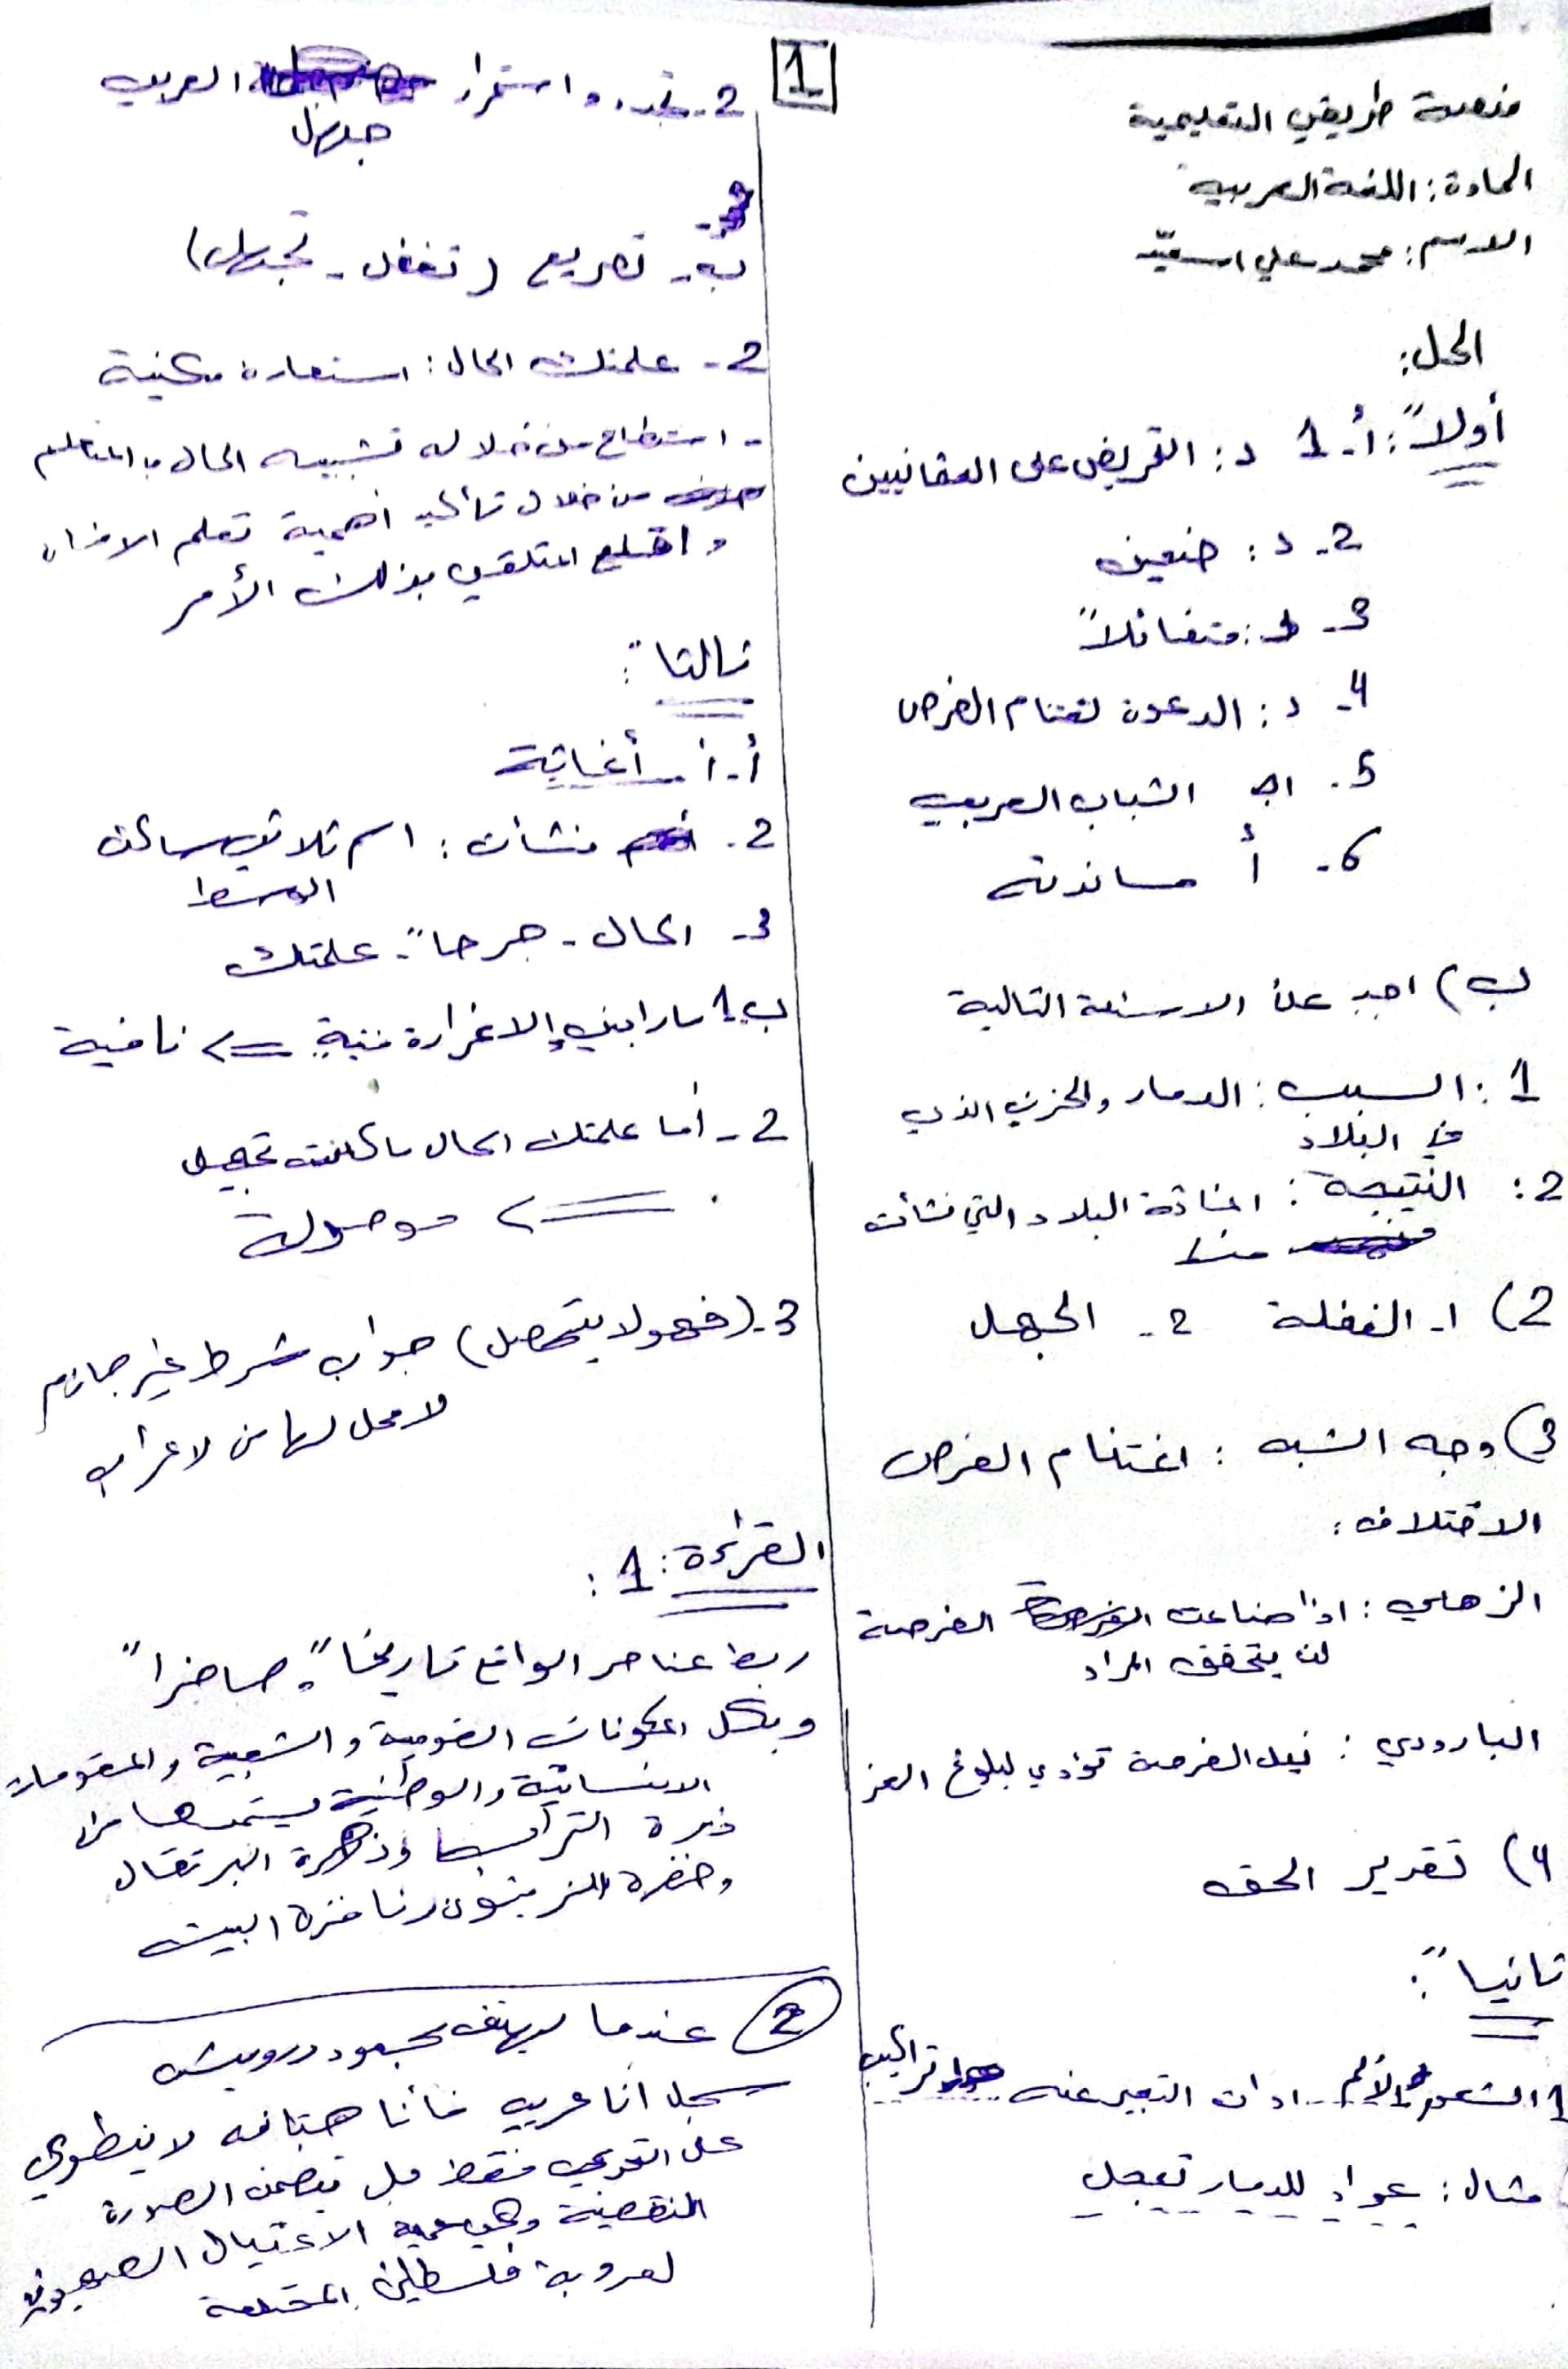 1
منصة طريقي التعليمية
المادة: اللغة العربية
الاسم: محمد علي السيّد
الحل:
أولاً: أ. 1 د: التحريض على العثمانيين
2. د: ضعيف
3. د: متفائلاً
4. د: الدعوة لغتنام الفرص
5. ج الشباب العربي
6. أ مساندته
ب) اجب عن الاسئلة التالية
1: السبب: الدمار والحزن الذي
في البلاد
2: النتيجة: اغاثة البلاد التي نشأت
منها
2) 1. الغفلة 2. الجهل
3) وجه الشبه: اغتنام الفرص
الاختلاف:
الزهاوي: اذا ضاعت الفرصة
لن يتحقق المراد
البارودي: نيل الفرصة تؤدي لبلوغ العز
4) تقدير الحق
ثانياً:
1 الشعور الألم. ادات التعبير عنه تراكيب
مثال: عواد للديار تعجل
2. تجدد واستمرار العرب
جهل
ب. تصريع (تغفل - تجهل)
2. علمتك الحال: استعارة مكنية
- استطاع من خلاله تشبيه الحال بالمتعلم
من خلال تأكيد أهمية تعلم الانسان
واقناع المتلقي بذلك الأمر
ثالثا:
أ. أ. أغاثة
2. نشأت: اسم ثلاثي ساكن
الوسط
3. الحال - جرحاً - علمتك
ب. 1 ما رابني إلا غرارة فتية <= نافية
2. أما علمتك الحال ما كنت تجهل
<= موصولة
3. (فهو لا يتمهل) جواب شرط غير جازم
لا محل لها من لاعراب
القراءة: 1:
ربط عناصر الواقع تاريخاً وحاضراً
وبكل المكونات القومية والشعبية والمقومات
الانسانية والوطنية يستمدها من
ذرة التراب وزهرة البرتقال
وخضرة الزيتون ونافذة البيت
2 عندما يهتف محمود درويش
سجل انا عربي فأنا هتافه لا ينطوي
على التحدي فقط بل يتضمن الصورة
النقيضة وهي عملية الاغتيال الصهيوني
لعروبة فلسطين المحتلة